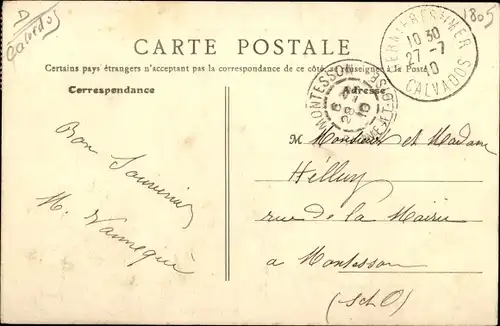 D
Calvados
1805
CARTE POSTALE
Certains pays étrangers n'acceptant pas la correspondance de ce côté, se renseigner à la Poste
Correspondance
Adresse
BERNIÈRES-S-MER
10 30
27-7
10
CALVADOS
MONTESSON
28
10
Bon Souvenir
M.
M Monsieur et Madame
Hélluy
rue de la Mairie
a Montesson
(S et O)